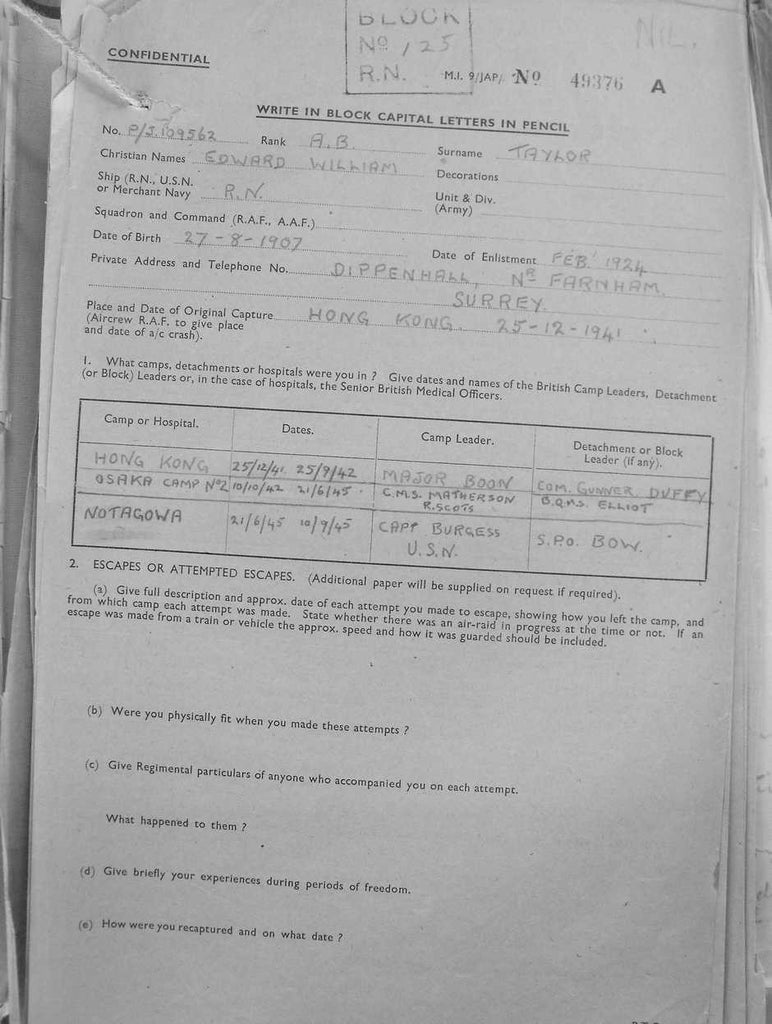 BLOCK
Nº 125
R.N.
NIL.
CONFIDENTIAL
M.I. 9/JAP/ Nº 49376 A
WRITE IN BLOCK CAPITAL LETTERS IN PENCIL
No. P/J.109562 Rank A.B. Surname TAYLOR
Christian Names EDWARD WILLIAM Decorations
Ship (R.N., U.S.N. or Merchant Navy R.N. Unit & Div. (Army)
Squadron and Command (R.A.F., A.A.F.)
Date of Birth 27-8-1907 Date of Enlistment FEB' 1924
Private Address and Telephone No. DIPPENHALL, NR FARNHAM,
SURREY.
Place and Date of Original Capture HONG KONG. 25-12-1941
(Aircrew R.A.F. to give place
and date of a/c crash).
1. What camps, detachments or hospitals were you in ? Give dates and names of the British Camp Leaders, Detachment
(or Block) Leaders or, in the case of hospitals, the Senior British Medical Officers.
Camp or Hospital. Dates. Camp Leader. Detachment or Block Leader (if any).
HONG KONG 25/12/41 25/9/42 MAJOR BOON COM. GUNNER DUFFY
OSAKA CAMP Nº2 10/10/42 21/6/45 C.M.S. MATHERSON R.SCOTS B.Q.M.S. ELLIOT
NOTAGOWA 21/6/45 10/9/45 CAPT BURGESS U.S.N. S.P.O. BOW.
2. ESCAPES OR ATTEMPTED ESCAPES. (Additional paper will be supplied on request if required).
(a) Give full description and approx. date of each attempt you made to escape, showing how you left the camp, and
from which camp each attempt was made. State whether there was an air-raid in progress at the time or not. If an
escape was made from a train or vehicle the approx. speed and how it was guarded should be included.
(b) Were you physically fit when you made these attempts ?
(c) Give Regimental particulars of anyone who accompanied you on each attempt.
What happened to them ?
(d) Give briefly your experiences during periods of freedom.
(e) How were you recaptured and on what date ?